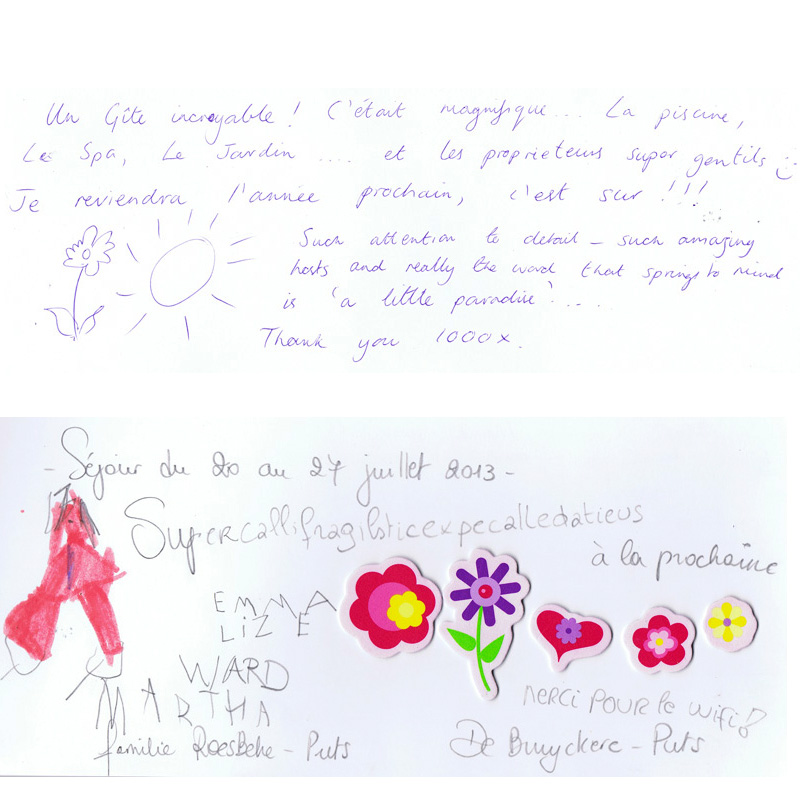 Un Gîte incroyable ! C'était magnifique... La piscine,
Le Spa, Le Jardin .... et les proprieteurs super gentils :)
Je reviendra l'année prochain, c'est sur !!!
Such attention to detail – such amazing
hosts and really the word that springs to mind
is 'a little paradise'....
Thank you 1000x.
- Séjour du 20 au 27 juillet 2013 -
Supercallifragilisticexpecalledatieus
à la prochaine
EMMA
LiZE
WARD
MARTHA
MERCi POUR le wifi!
familie Roesbeke - Puts
De Bruyckere - Puts